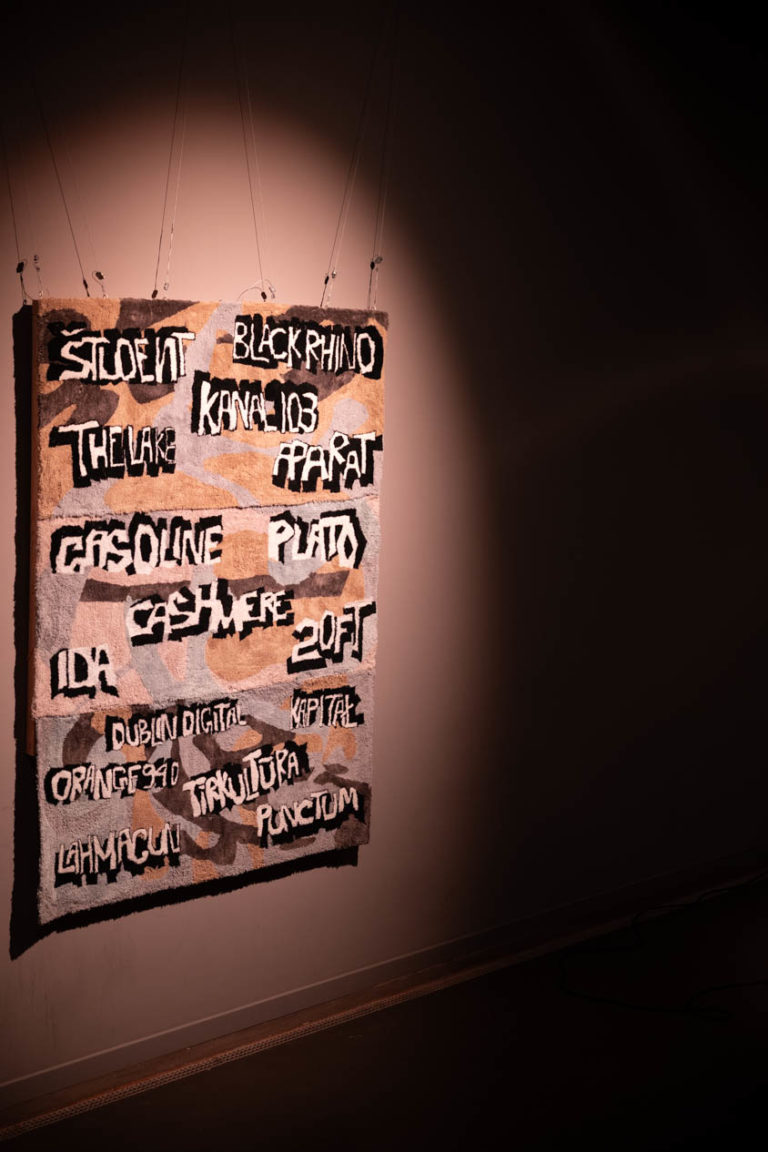 ŠTUDENT
BLACK RHINO
KANAL 103
THE LAKE
APARAT
GASOLINE
PLATO
CASHMERE
20FT
IDA
DUBLIN DIGITAL
KAPITAŁ
ORANGE 94 0
TIRKULTŪRA
PUNCTUM
LAHMACUN